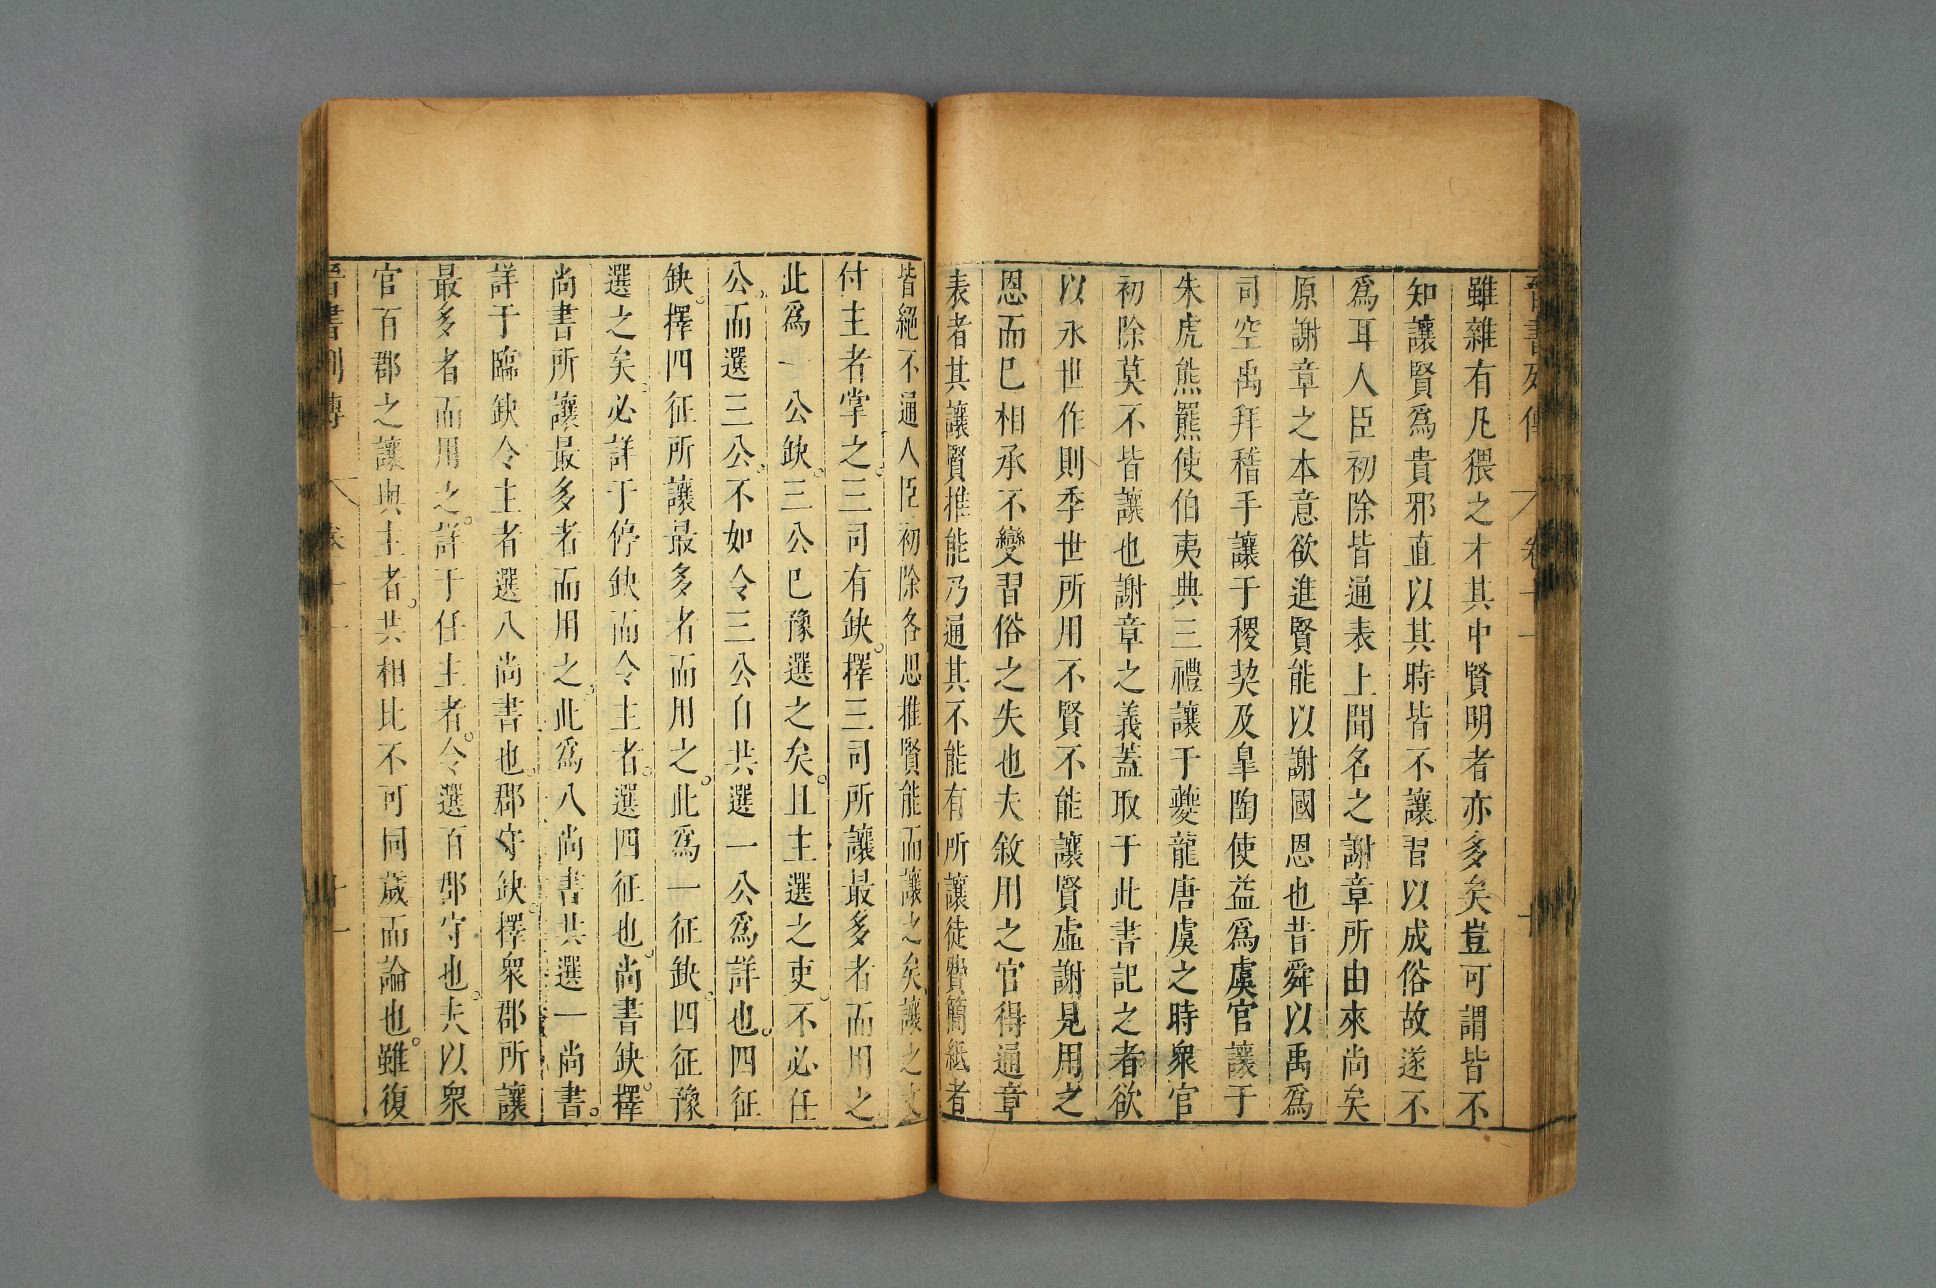 晉書列傳 卷十一 十
雖雜有凡猥之才其中賢明者亦多矣豈可謂皆不
知讓賢爲貴邪直以其時皆不讓習以成俗故遂不
爲耳人臣初除皆通表上聞名之謝章所由來尚矣
原謝章之本意欲進賢能以謝國恩也昔舜以禹爲
司空禹拜稽手讓于稷契及皐陶使益爲虞官讓于
朱虎熊羆使伯夷典三禮讓于夔龍唐虞之時衆官
初除莫不皆讓也謝章之義蓋取于此書記之者欲
以永世作則季世所用不賢不能讓賢虛謝見用之
恩而巳相承不變習俗之失也夫敘用之官得通章
表者其讓賢推能乃通其不能有所讓徒費簡紙者
皆絕不通人臣初除各思推賢能而讓之矣讓之文
付主者掌之。三司有缺。擇三司所讓最多者而用之
此爲一公缺。三公巳豫選之矣。且主選之吏。不必任
公。而選三公。不如令三公自共選一公爲詳也。四征
缺。擇四征所讓最多者而用之。此爲一征缺。四征豫
選之矣。必詳于停缺而令主者。選四征也。尚書缺。擇
尚書所讓最多者而用之。此爲八尚書共選一尚書。
詳于臨缺令主者選八尚書也。郡守缺。擇衆郡所讓
最多者而用之。詳于任主者。令選百郡守也。夫以衆
官百郡之讓與主者。共相比不可同歲而論也。雖復
晉書列傳 卷十一 十一